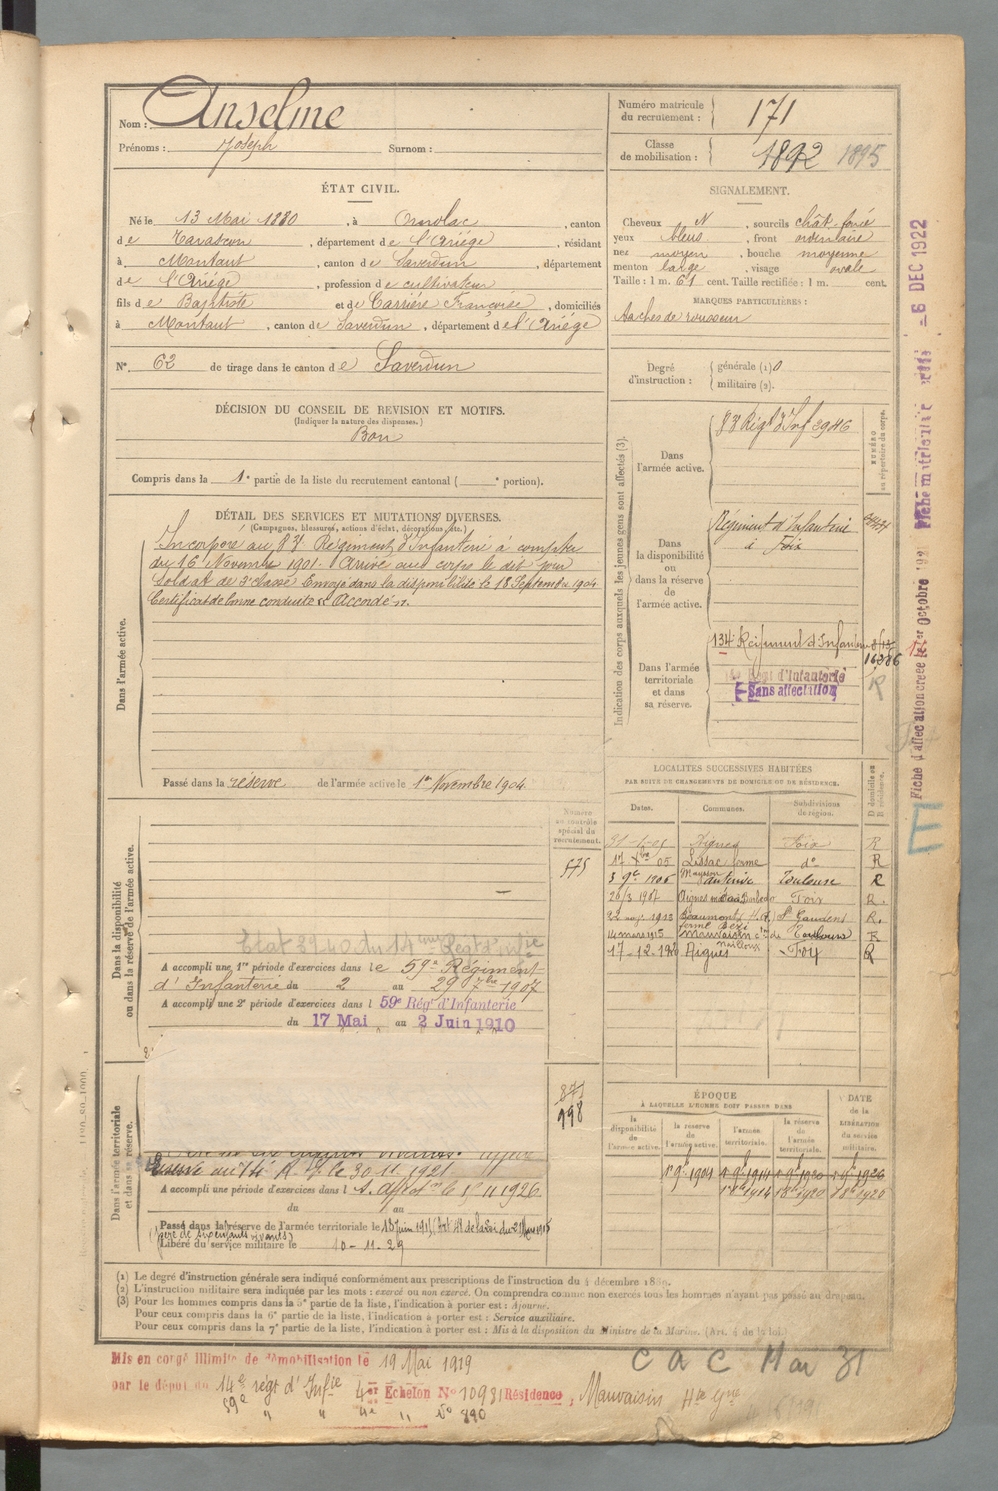 Nom : Anselme
Prénoms : Joseph Surnom :
Numéro matricule du recrutement : 171
Classe de mobilisation : 1892 1895
ÉTAT CIVIL.
Né le 13 Mai 1880, à Ornolac, canton
de Tarascon, département de l'Ariége, résidant
à Montaut, canton de Saverdun, département
de l'Ariége, profession de cultivateur
fils de Baptiste et de Carrière Françoise, domiciliés
à Montaut, canton de Saverdun, département de l'Ariége
N° 62 de tirage dans le canton de Saverdun
SIGNALEMENT.
Cheveux N, sourcils chât. foncé
yeux bleus, front ordinaire
nez moyen, bouche moyenne
menton large, visage ovale
Taille : 1 m. 61 cent. Taille rectifiée : 1 m. cent.
MARQUES PARTICULIÈRES :
taches de rousseur
Degré d'instruction : générale (1) 0
militaire (2).
DÉCISION DU CONSEIL DE REVISION ET MOTIFS.
(Indiquer la nature des dispenses.)
Bon
Compris dans la 1e partie de la liste du recrutement cantonal ( e portion).
DÉTAIL DES SERVICES ET MUTATIONS DIVERSES.
(Campagnes, blessures, actions d'éclat, décorations, etc.)
Dans l'armée active.
Incorporé au 83e Régiment d'Infanterie à compter
du 16 Novembre 1901. Arrivé au corps le dit jour
Soldat de 2e classe. Envoyé dans la disponibilité le 18 Septembre 1904
Certificat de bonne conduite "Accordé".
Passé dans la réserve de l'armée active le 1er Novembre 1904
Indication des corps auxquels les jeunes gens sont affectés (3).
NUMÉRO au répertoire du corps.
Dans l'armée active.
83 Régt d'Inf 2946
Dans la disponibilité ou dans la réserve de l'armée active.
Régiment d'Infanterie
à Foix
Dans l'armée territoriale et dans sa réserve.
134 Régiment d'Infanterie
16386
Régt d'Infanterie
Sans affectation
R
LOCALITÉS SUCCESSIVES HABITÉES
PAR SUITE DE CHANGEMENTS DE DOMICILE OU DE RÉSIDENCE.
Dates. Communes. Subdivisions de région. D domicile ou R résidence.
Foix R
Xbre 05 Lissac ferme do R
Toulouse R
20/3 1907 Foix R.
1913 Beaumont (H.G.) St Gaudens R.
14 mars 1915 Mauvaisin Toulouse R
17-12-1920 Aigues Foix R
Dans la disponibilité ou dans la réserve de l'armée active.
Numéro au contrôle spécial du recrutement.
575
A accompli une 1re période d'exercices dans le 59e Régiment
d'Infanterie du 2 au 29 7bre 1907
A accompli une 2e période d'exercices dans l 59e Régt d'Infanterie
du 17 Mai au 2 Juin 1910
Dans l'armée territoriale et dans sa réserve.
871
998
le 30 11 1921
A accompli une période d'exercices dans l S. affeton le 1er 11 1926
du au
Passé dans la réserve de l'armée territoriale le
(père de six enfants vivants)
Libéré du service militaire le 10-11-29
ÉPOQUE
À LAQUELLE L'HOMME DOIT PASSER DANS
la disponibilité de l'armée active.
la réserve de l'armée active.
l'armée territoriale.
la réserve de l'armée territoriale.
DATE de la LIBÉRATION du service militaire.
1er 9b 1904 1er 9b 1914 1er 9b 1920 1er 9b 1926
(1) Le degré d'instruction générale sera indiqué conformément aux prescriptions de l'instruction du 4 décembre 1889.
(2) L'instruction militaire sera indiquée par les mots : exercé ou non exercé. On comprendra comme non exercés tous les hommes n'ayant pas passé au drapeau.
(3) Pour les hommes compris dans la 5e partie de la liste, l'indication à porter est : Ajourné.
Pour ceux compris dans la 6e partie de la liste, l'indication à porter est : Service auxiliaire.
Pour ceux compris dans la 7e partie de la liste, l'indication à porter est : Mis à la disposition du Ministre de la Marine. (Art. 4 de la loi.)
Mis en congé illimité de démobilisation le 19 Mai 1919
par le dépôt du 14e régt d'Infie 4er Echelon N° 10931 Résidence, Mauvaisin Hte Gne
59e " " 4e " N° 890
C a C Mai 31
Fiche d'affectation créée le 1er Octobre
Fiche matriculaire
-6 DEC 1922
E